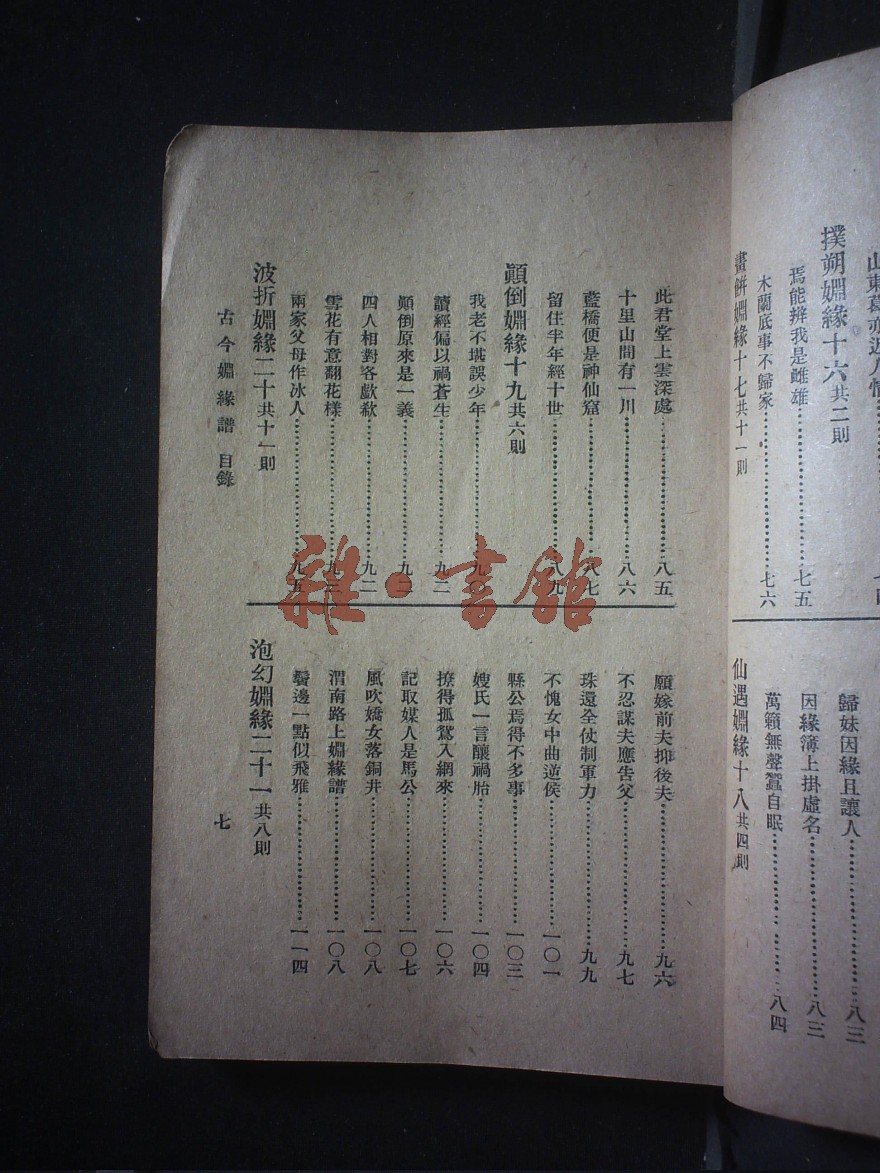 撲朔婣緣十六共二則
焉能辨我是雌雄……七五
木蘭底事不歸家……七六
畫餠婣緣十七共十一則
歸妹因緣且讓人……八三
因緣簿上掛虛名……八三
萬籟無聲蠶自眠……八四
仙遇婣緣十八共四則
此君堂上雲深處……八五
十里山間有一川……八六
藍橋便是神仙窟……八七
留住半年經十世……八九
顚倒婣緣十九共六則
我老不堪誤少年……九〇
讀經偏以禍蒼生……九二
顚倒原來是一義……九二
四人相對各歔欷……九二
雪花有意翻花樣……九三
兩家父母作冰人……九五
波折婣緣二十共十一則
願嫁前夫抑後夫……九六
不忍謀夫應吿父……九七
珠還全仗制軍力……九九
不愧女中曲逆侯……一〇一
縣公焉得不多事……一〇三
嫂氏一言釀禍胎……一〇四
撩得孤鶩入網來……一〇六
記取媒人是馬公……一〇七
風吹嬌女落銅井……一〇八
渭南路上婣緣譜……一〇八
鬢邊一點似飛鴉……一一四
泡幻婣緣二十一共八則
古今婣緣譜 目錄
七
雜·書館